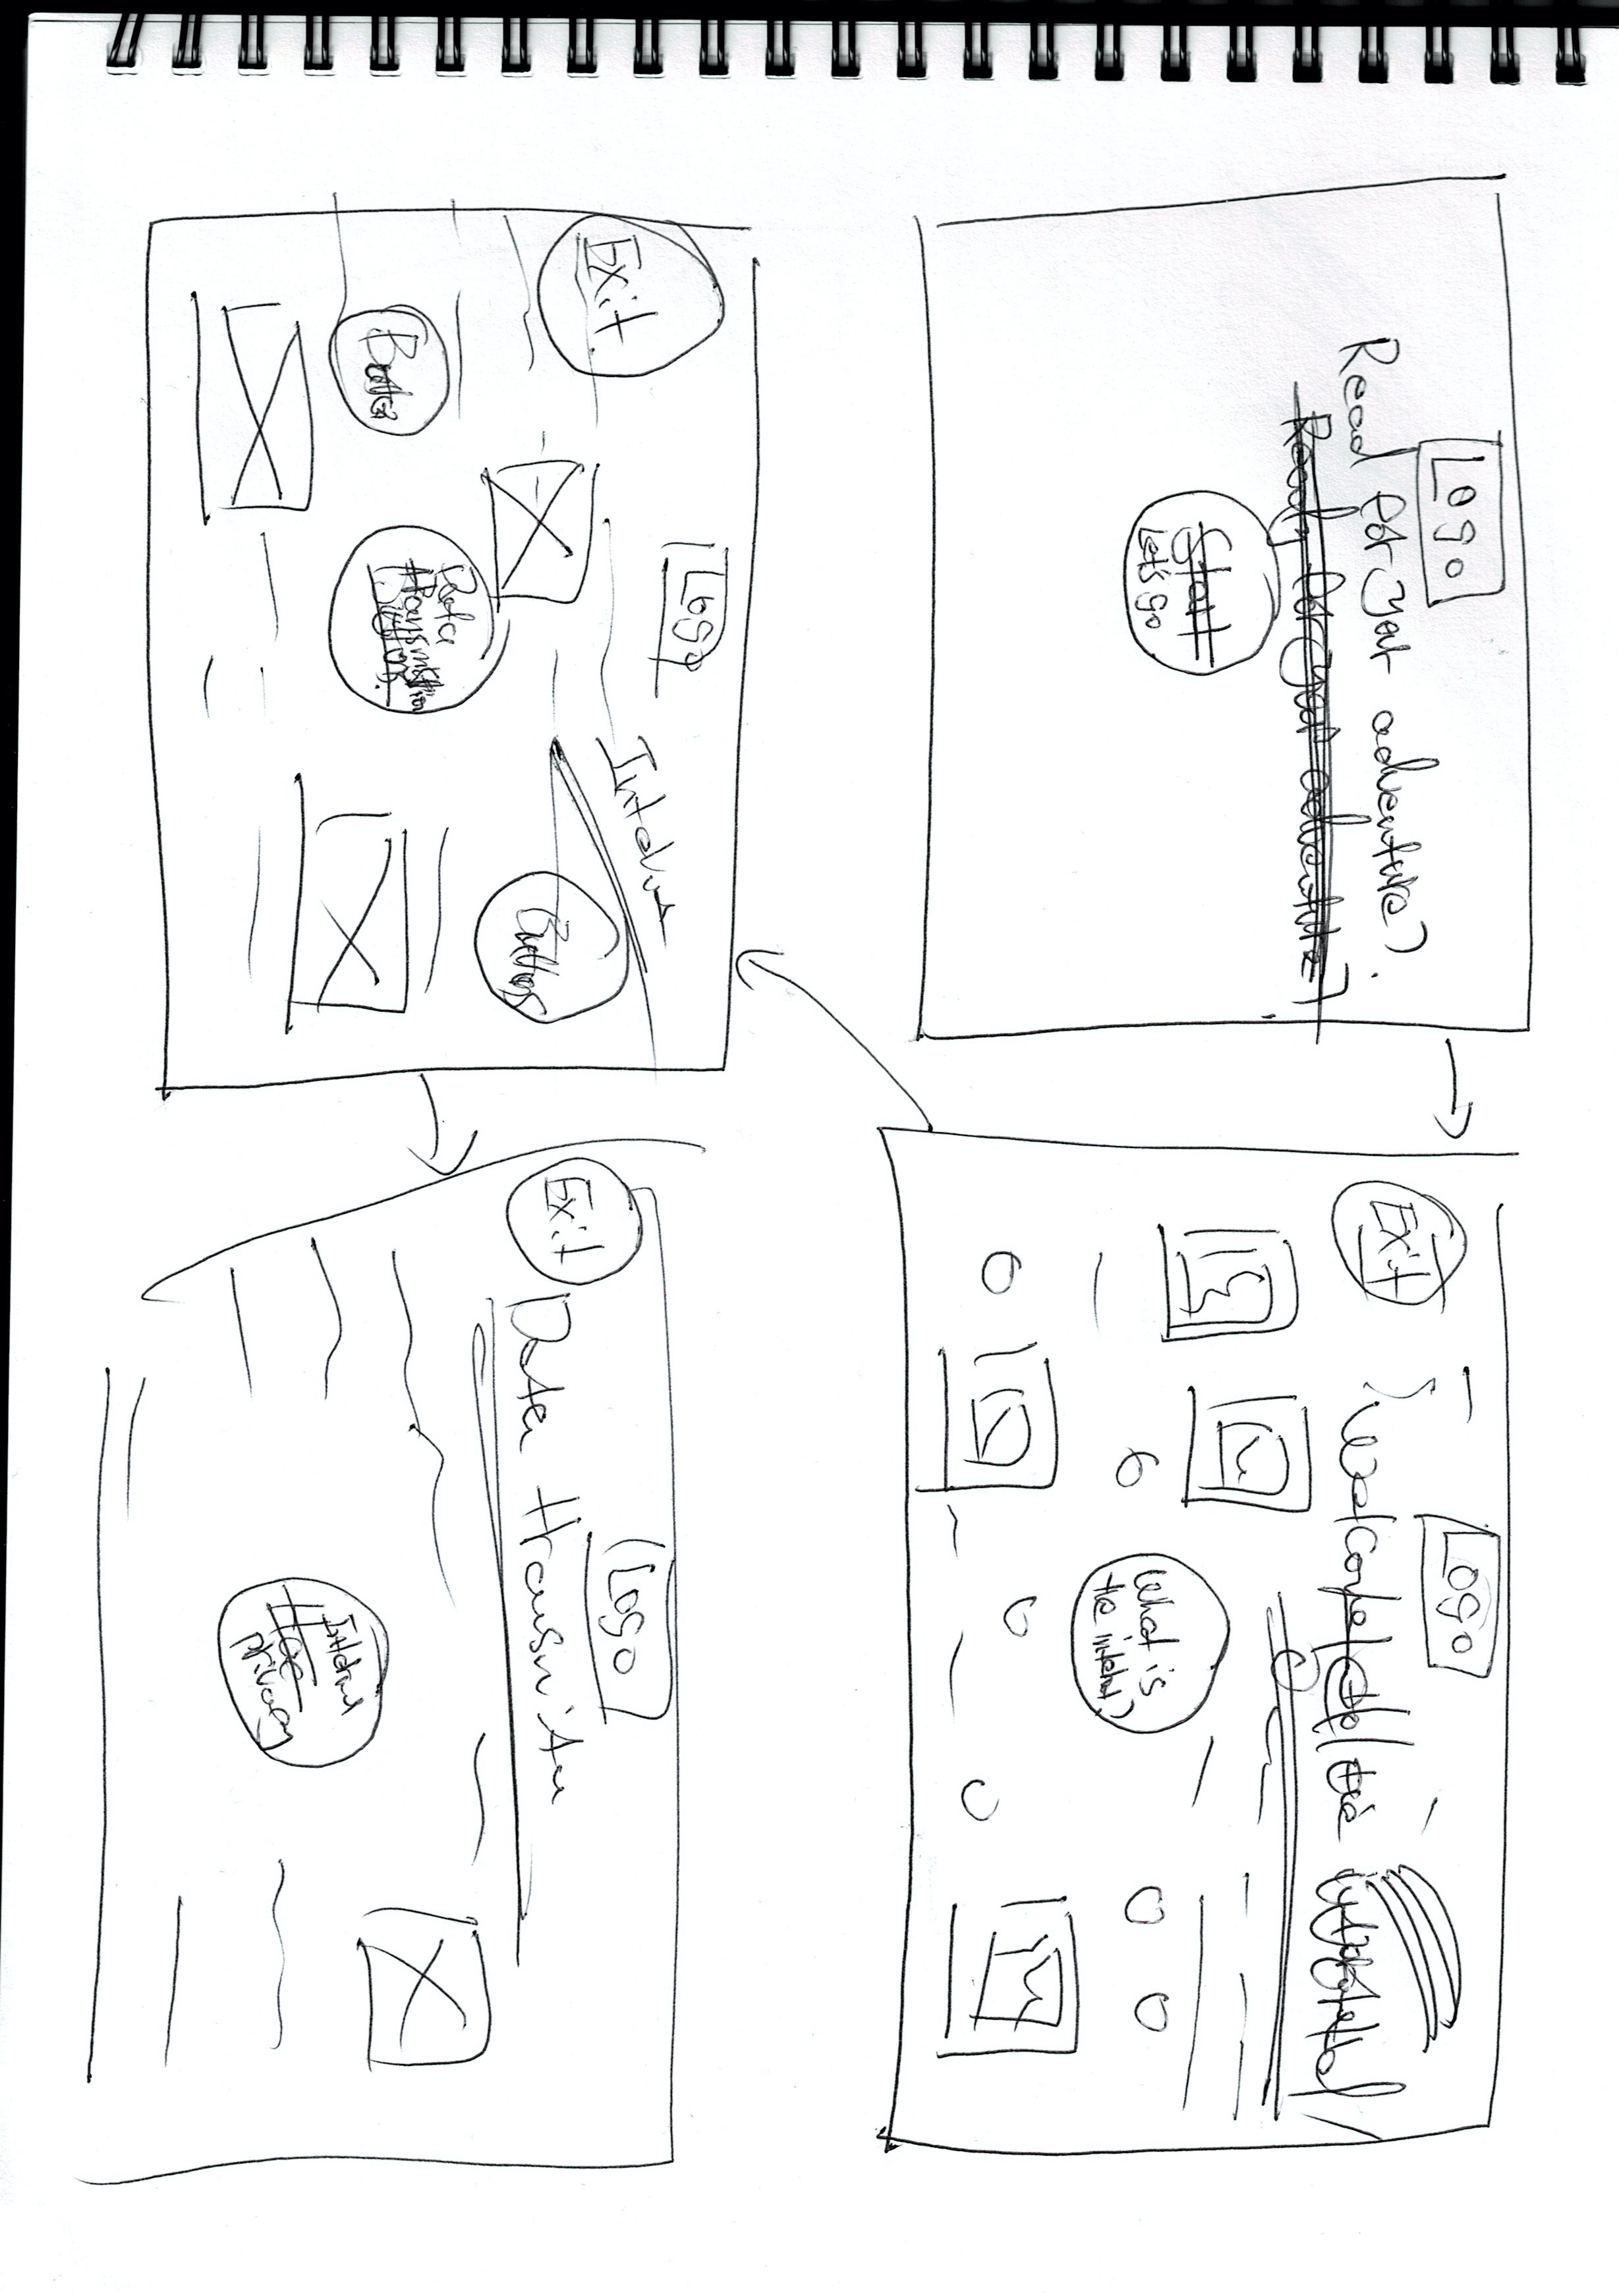 Logo
Read for your adventure?
Ready for your adventure?
Start
Let's go
Logo
Exit
Welcome to the
What is
the internet?
Logo
Exit.
Buttons
Data
transmission
Button
Logo
Exit
Data
Internet
privacy